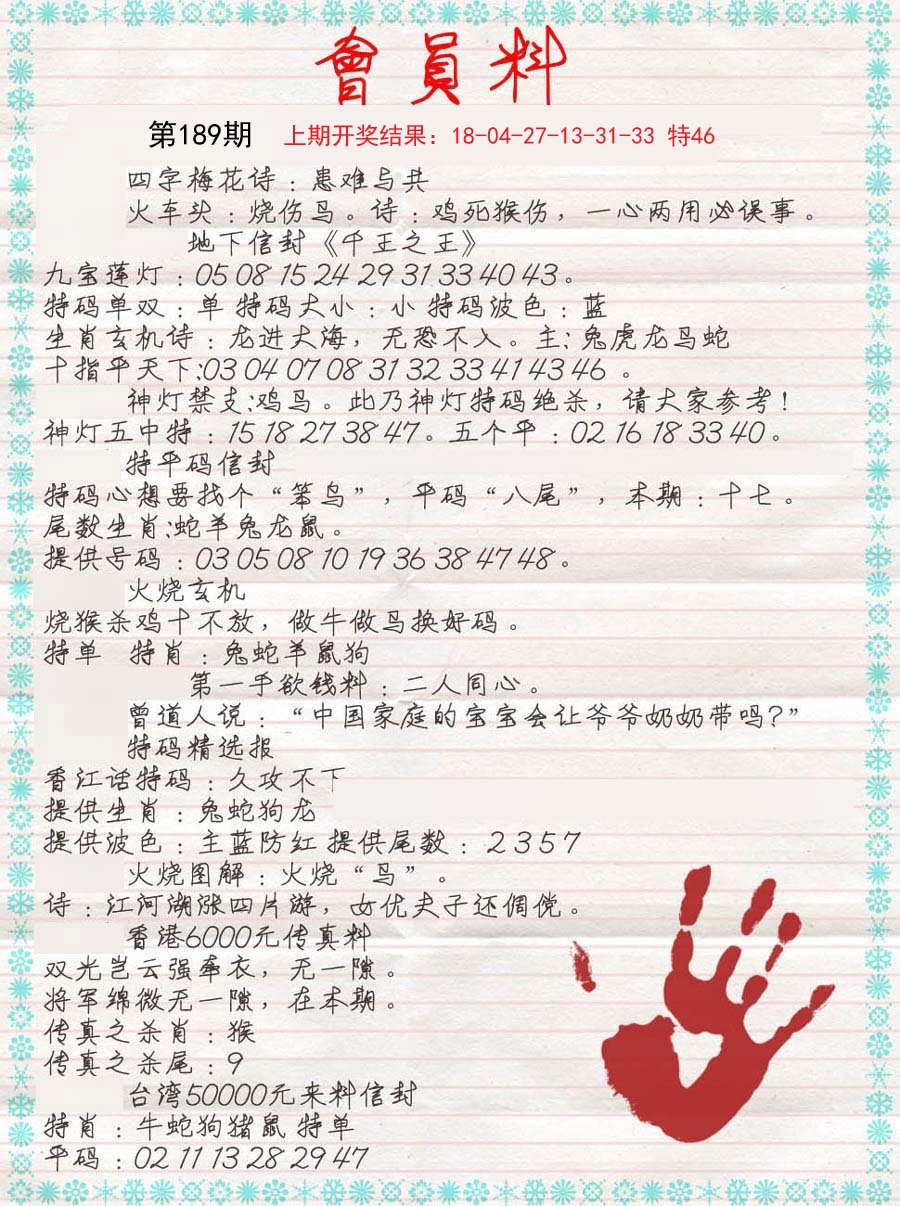 會員料
第189期 上期开奖结果：18-04-27-13-31-33 特46
四字梅花诗：患难与共
火车头：烧伤鸟。诗：鸡死猴伤，一心两用必误事。
地下信封《千王之王》
九宝莲灯：05 08 15 24 29 31 33 40 43。
特码单双：单 特码大小：小 特码波色：蓝
生肖玄机诗：龙进大海，无恐不入。主：兔虎龙鸟蛇
十指平天下：03 04 07 08 31 32 33 41 43 46 。
神灯禁支：鸡鸟。此乃神灯特码绝杀，请大家参考！
神灯五中特：15 18 27 38 47。五个平：02 16 18 33 40。
特平码信封
特码心想要找个“笨鸟”，平码“八尾”，本期：十七。
尾数生肖：蛇羊兔龙鼠。
提供号码：03 05 08 10 19 36 38 47 48。
火烧玄机
烧猴杀鸡十不放，做牛做鸟换好码。
特单 特肖：兔蛇羊鼠狗
第一手欲钱料：二人同心。
曾道人说：“中国家庭的宝宝会让爷爷奶奶带吗？”
特码精选报
香江话特码：久攻不下
提供生肖：兔蛇狗龙
提供波色：主蓝防红 提供尾数：2 3 5 7
火烧图解：火烧“鸟”。
诗：江河湖涨四片游，女优夫子还倜傥。
香港6000元传真料
双光岂云强牵衣，无一隙。
将军绵微无一隙，在本期。
传真之杀肖：猴
传真之杀尾：9
台湾50000元来料信封
特肖：牛蛇狗猪鼠 特单
平码：02 11 13 28 29 47